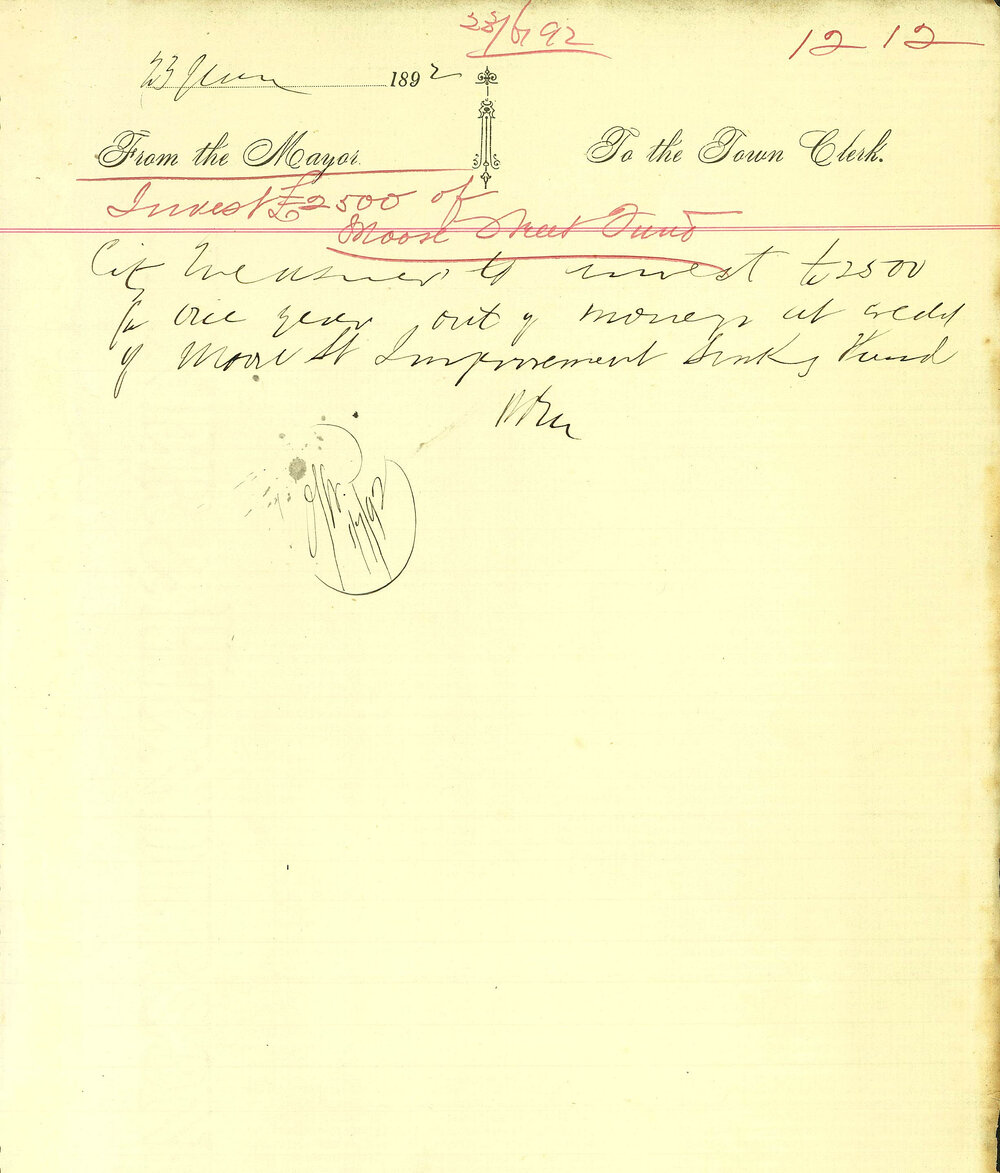 23/6/92
1212
23 June 1892
From the Mayor.
To the Town Clerk.
Invest £2500 of
Moore Street Fund
City Treasurer to invest £2500
for one year out of moneys at credit
of Moore St Improvement Sinkg Fund
1/7/92